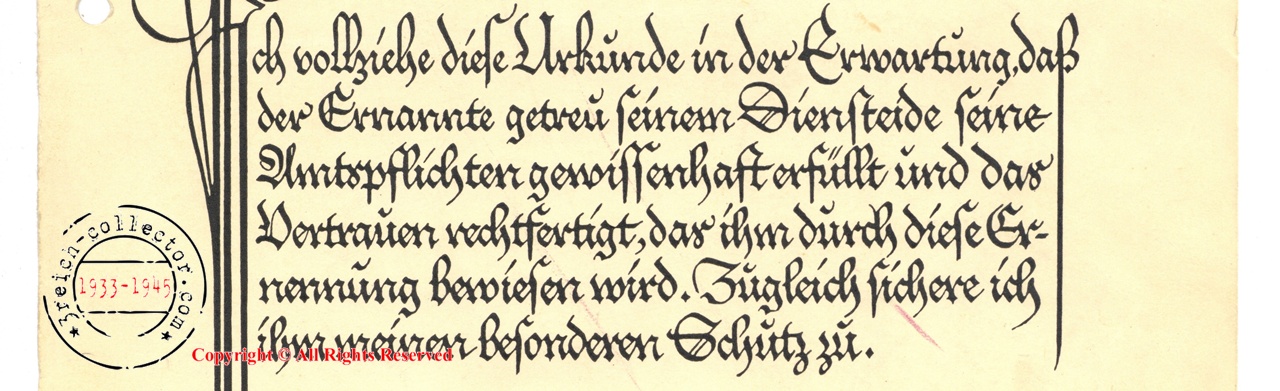 Ich vollziehe diese Urkunde in der Erwartung, daß
der Ernannte getreu seinem Diensteide seine
Amtspflichten gewissenhaft erfüllt und das
Vertrauen rechtfertigt, das ihm durch diese Er-
nennung bewiesen wird. Zugleich sichere ich
ihm meinen besonderen Schutz zu.
3reich-collector.com
1933-1945
Copyright © All Rights Reserved